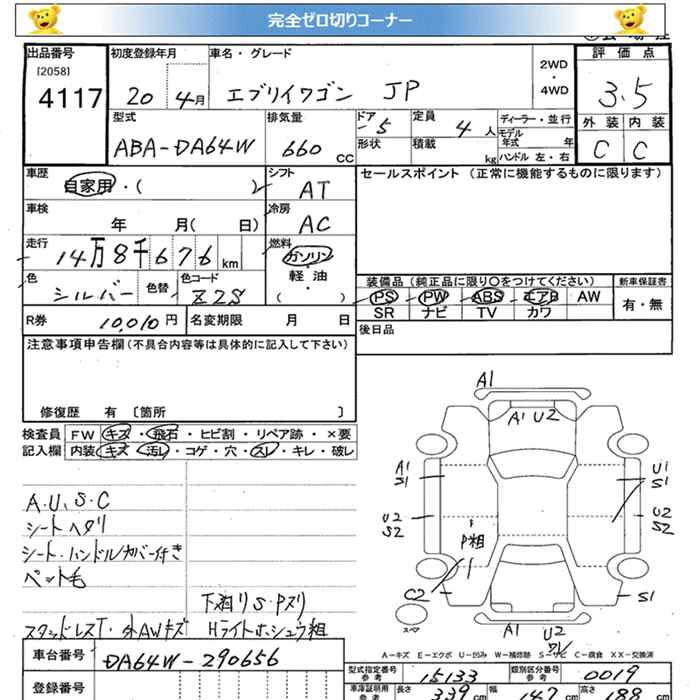 完全ゼロ切りコーナー
出品番号 初度登録年月 車名・グレード 評価点
[2058] 2WD
4117 20 4月 エブリイワゴン JP ・ 3.5
4WD
型式 排気量 ドア 5 定員 4人 ディーラー・並行 外装 内装
ABA-DA64W 660 CC 形状 積載 kg モデル年式 年 C C
ハンドル 左・右
車歴 シフト セールスポイント (正常に機能するものに限ります)
自家用・( ) AT
車検 冷房
年 月( 日) AC
走行 燃料
14万8千676km ガソリン
色 色替 色コード 軽油
シルバー Z2S ・
( )
装備品(純正品に限り○をつけてください) 新車保証書
PS PW ABS エアB AW 有・無
SR ナビ TV カワ
R券 10,010円 名変期限 月 日 後日品
注意事項申告欄(不具合内容等は具体的に記入して下さい)
修復歴 有 〔箇所 〕
検査員 FW キズ・飛石・ヒビ割・リペア跡・×要
記入欄 内装 キズ・汚レ・コゲ・穴・スレ・キレ・破レ
A1
A1 U2
A1 U1
S1 S1
U2 U2
S2 S2
P粗
C2 S1
スペア
A1 U2
A.U.S.C
シートヘタリ
シート・ハンドルカバー付き
ペット毛
下廻りS・Pヌリ
スタッドレスT・外AWキズ Hライトホシュウ粗
A-キズ E-エクボ U-凹み W-補修跡 S-サビ C-腐食 XX-交換済
車台番号 DA64W-290656
型式指定番号 参考 15133 類別区分番号 参考 0019
登録番号
車庫証明用 参考 長さ 339cm 幅 147cm 高さ 188cm